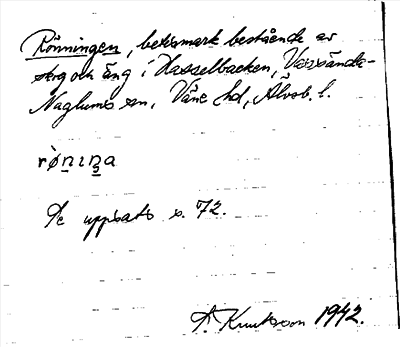 Rönningen, betesmark bestående av
skog och äng i Hasselbacken, Vassända-
Naglums sn, Väne hd, Älvsb. l.
rø̀nıŋa
Se uppsats s. 72.
A. Knutsson 1942.